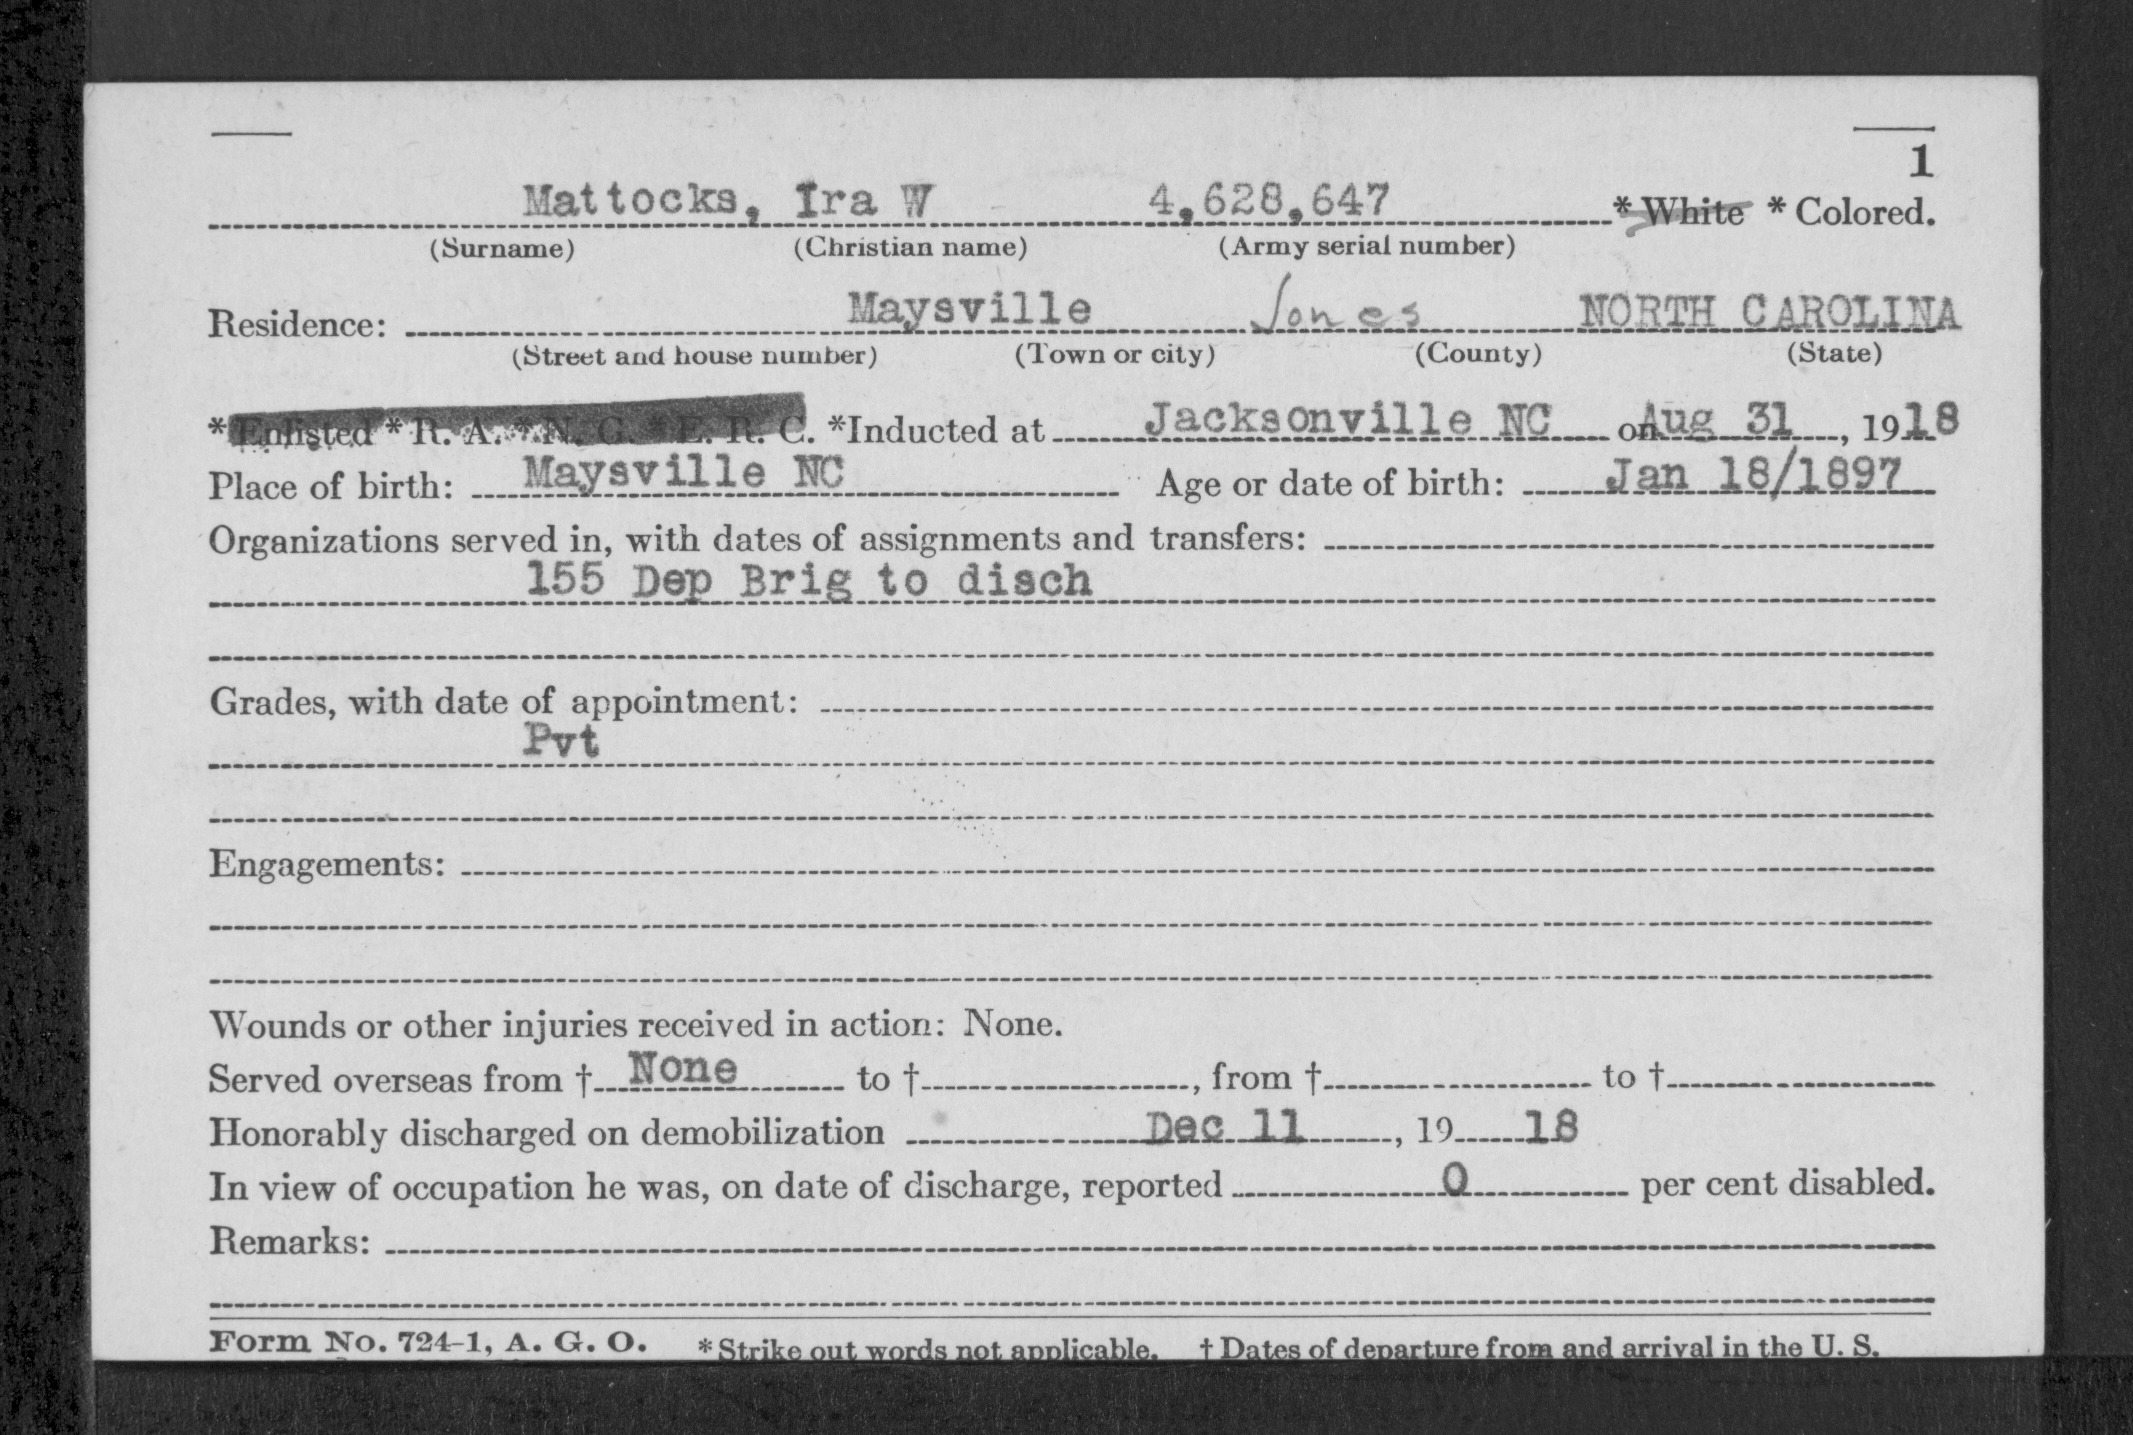 1
Mattocks, Ira W 4,628,647 * White * Colored.
(Surname) (Christian name) (Army serial number)
Residence: Maysville Jones NORTH CAROLINA
(Street and house number) (Town or city) (County) (State)
* Enlisted * R. A. * N. G. * E. R. C. *Inducted at Jacksonville NC on Aug 31, 1918
Place of birth: Maysville NC Age or date of birth: Jan 18/1897
Organizations served in, with dates of assignments and transfers:
155 Dep Brig to disch
Grades, with date of appointment:
Pvt
Engagements:
Wounds or other injuries received in action: None.
Served overseas from † None to †, from † to †
Honorably discharged on demobilization Dec 11, 19 18
In view of occupation he was, on date of discharge, reported 0 per cent disabled.
Remarks:
Form No. 724-1, A. G. O. * Strike out words not applicable. † Dates of departure from and arrival in the U. S.